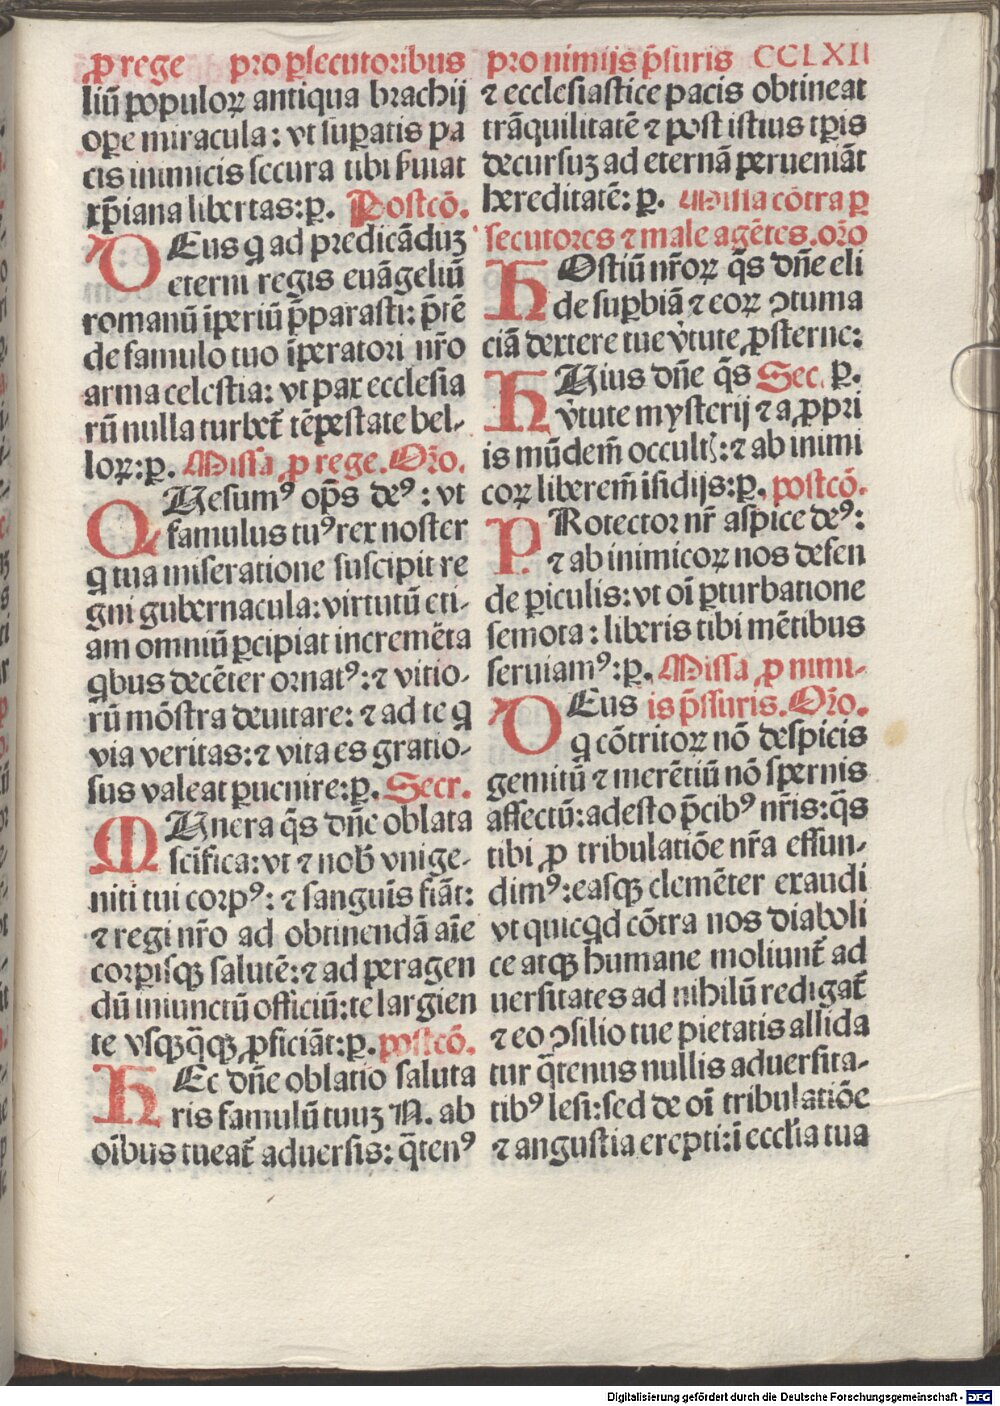 ꝓ rege pro ꝑsecutoribus pro nimijs p̄suris CCLXII
liū populoꝝ antiqua brachij
oꝑe miracula: vt suꝑatis pa
cis inimicis secura tibi ẜuiat
xp̄iana libertas:ꝑ. Postcō.
DEus q̇ ad predicādūꝫ
eterni regis euāgeliū
romanū īꝑeriū p̄parasti: p̄tē
de famulo tuo īꝑeratori nr̄o
arma celestia: vt pax ecclesia
rū nulla turbet᷑ tēpestate bel-
loꝝ:ꝑ. Missa ꝓ rege. Oro.
QUesumꝰ op̄s deꝰ: vt
famulus tuꝰ rex noster
q̇ tua miseratione suscipit re
gni gubernacula: virtutū eti-
am omniū ꝑcipiat incremēta
q̇bus decēter ornatꝰ: ⁊ vitio-
rū mōstra deuitare: ⁊ ad te q̇
via veritas: ⁊ vita es gratio-
sus valeat ꝑuenire:ꝑ. Secr.
MUnera q̄s dn̄e oblata
sc̄ifica: vt ⁊ nob̄ vnige-
niti tui corpꝰ: ⁊ sanguis̄ fiāt:
⁊ regi nr̄o ad obtinendā aīe
corpisqꝫ salutē: ⁊ ad peragen
dū iniunctū officiū: te largien
te vsqꝫq̄qꝫ ꝓficiāt:ꝑ. postcō.
HEc dn̄e oblatio saluta
ris famulū tuuꝫ N. ab
oībus tueat᷑ aduersis: q̄tenꝰ
⁊ ecclesiastice pacis obtineat
trāquilitatē ⁊ post istius tꝑis
decursuꝫ ad eternā perueniāt
hereditatē: ꝑ. Missa cōtra ꝑ
secutores ⁊ male agētes. oro
HOstiū nr̄oꝝ q̄s dn̄e eli
de suꝑbiā ⁊ eoꝝ ꝯtuma
ciā dextere tue v̇tute ꝓsterne:
HUius dn̄e q̄s Sec. ꝑ.
v̇tute mysterij ⁊ a ꝓpri
is mūdem̄ occultꝭ: ⁊ ab inimi
coꝝ liberem̄ īsidijs:ꝑ. postcō.
PRotector nr̄ aspice deꝰ:
⁊ ab inimicoꝝ nos defen
de ꝑiculis: vt oī ꝑturbatione
semota: liberis tibi mētibus
seruiamꝰ:ꝑ. Missa ꝓ nimi-
DEus is p̄ssuris. Oro.
q̇ cōtritoꝝ nō despicis
gemitū ⁊ merētiū nō spernis
affectū: adesto p̄cibꝰ nr̄is: q̄s
tibi ꝓ tribulatiōe nr̄a effun-
dimꝰ: easqꝫ clemēter exaudi
vt quicq̇d cōtra nos diaboli
ce atqꝫ humane moliunt᷑ ad
uersitates ad nihilū redigat᷑
⁊ eo ꝯsilio tue pietatis allida
tur q̄tenus nullis aduersita-
tibꝰ lesi: sed de oī tribulatiōe
⁊ angustia erepti: ī eccl̄ia tua
Digitalisierung gefördert durch die Deutsche Forschungsgemeinschaft - DFG